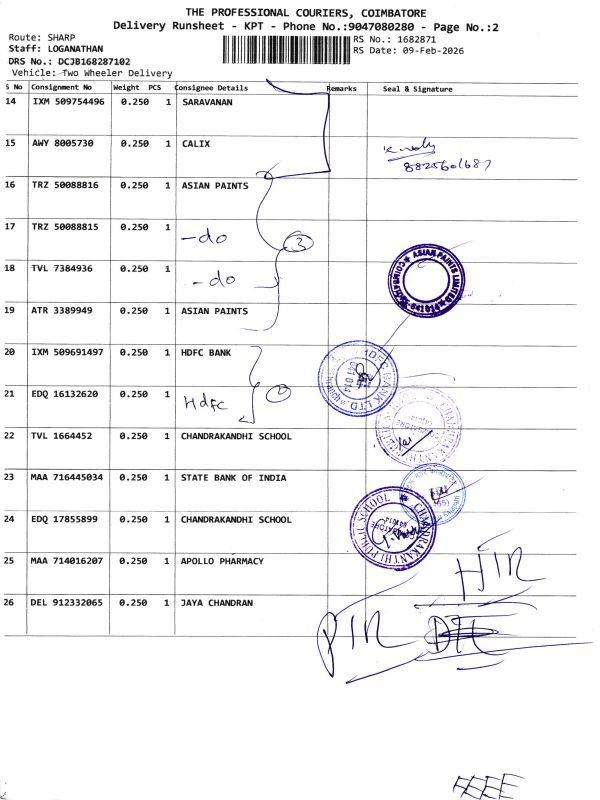 THE PROFESSIONAL COURIERS, COIMBATORE
Delivery Runsheet - KPT - Phone No.:9047080280 - Page No.:2
Route: SHARP
RS No.: 1682871
Staff: LOGANATHAN
RS Date: 09-Feb-2026
DRS No.: DCJB168287102
Vehicle: Two Wheeler Delivery
S No Consignment No Weight PCS Consignee Details Remarks Seal & Signature
14 IXM 509754496 0.250 1 SARAVANAN
15 AWY 8005730 0.250 1 CALIX
8825601687
16 TRZ 50088816 0.250 1 ASIAN PAINTS
17 TRZ 50088815 0.250 1 -do
3
18 TVL 7384936 0.250 1 -do
ASIAN PAINTS LIMITED
19 ATR 3389949 0.250 1 ASIAN PAINTS
20 IXM 509691497 0.250 1 HDFC BANK
HDFC BANK LTD
641 014
21 EDQ 16132620 0.250 1 HdFC
22 TVL 1664452 0.250 1 CHANDRAKANDHI SCHOOL
23 MAA 716445034 0.250 1 STATE BANK OF INDIA
24 EDQ 17855899 0.250 1 CHANDRAKANDHI SCHOOL
CHANDRAKANTHI PUBLIC SCHOOL
25 MAA 714016207 0.250 1 APOLLO PHARMACY
26 DEL 912332065 0.250 1 JAYA CHANDRAN